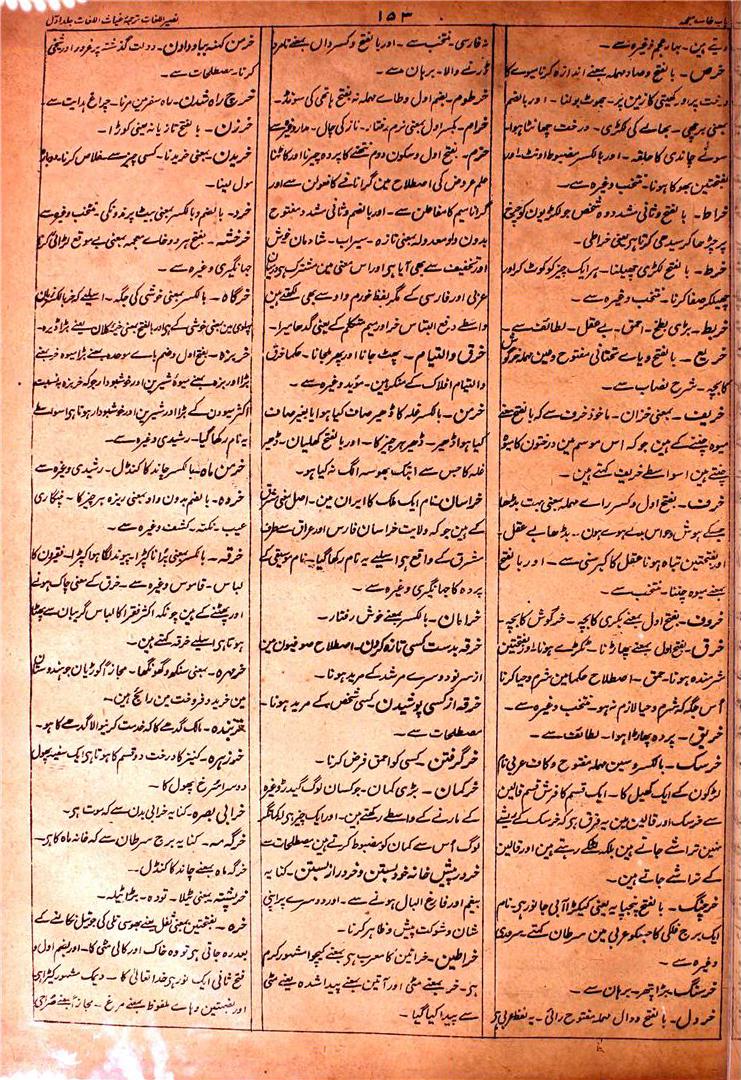 باب خاے معجمہ
۱۵۳
نصیر اللغات ترجمۂ غیاث اللغات جلد اول
دیتے ہین۔ بہار عجم وغیرہ سے۔
خرص۔ بالفتح وصاد مہملہ بمعنے اندازہ کرنا میوے کا
درخت پر اور کھیتی کا زمین پر۔ جھوٹ بولنا۔ اور بالضم
بمعنی برچھی۔ بھالے کی لکڑی۔ درخت چھانٹا ہوا۔
سونے چاندی کا حلقہ۔ اور بالکسر مضبوط اونٹ۔ اور
بفتحتین بھوکا ہونا۔ منتخب وغیرہ سے۔
خراط۔ بالفتح وثانی مشدد وہ شخص جو لکڑیون کو چرخ
پر چڑھا کر سیدھی کرتا ہے یعنی خراطی۔
خرط۔ بالفتح لکڑی چھیلنا۔ ہر ایک چیز کو کوٹ کر اور
چھیلکر صفا کرنا۔ منتخب وغیرہ سے۔
خربط۔ بڑی بطخ۔ احمق۔ بے عقل۔ لطائف سے۔
خریع۔ بالفتح ویاے تحتانی مفتوح وعین مہملہ خرگوش
کا بچہ۔ شرح نصاب سے۔
خریف۔ بمعنی خزان۔ ماخوذ خرف سے کہ بالفتح بمعنے
میوہ چننے کے ہین جو کہ اس موسم مین درختون کا میوہ
چنتے ہین اسواسطے خریف کہتے ہین۔
خرف۔ بفتح اول وکسر راے مہملہ بمعنی بہت بڈھا
جسکے ہوش وحواس بے ہوے ہون۔ بڈھا بے عقل۔
اور بفتحتین تباہ ہونا عقل کا کبر سنی سے۔ اور بالفتح
بمعنے میوہ چننا۔ منتخب سے۔
خروف۔ بفتح اول بمعنے بکری کا بچہ۔ خرگوش کا بچہ۔
خرق۔ بفتح اول بمعنے پھاڑنا۔ ٹکڑے ہونا۔ اور بفتحتین
شرمندہ ہونا۔ حمق۔ اصطلاح حکما مین شرم وحیا کرنا
اُس جگہ کہ شرم وحیا لازم نہ ہو۔ منتخب وغیرہ سے۔
خریق۔ پردہ پھاڑا ہوا۔ لطائف سے۔
خرسک۔ بالکسر وسین مہملہ مفتوح وکاف عربی نام
لڑکون کے ایک کھیل کا۔ ایک قسم کا فرش قسم قالین
سے خرسک اور قالین مین یہ فرق ہی کہ خرسک کے ریشے
نہین تراشے جاتے ہین بلکہ لٹکے رہتے ہین اور قالین
کے تراشے جاتے ہین۔
خرچنگ۔ بالفتح پنجپا یہ یعنی کیکڑا آبی جانور ہی۔ نام
ایک برج فلکی کا جسکو عربی مین سرطان کہتے ہین۔ سروری
وغیرہ سے۔
خرسنگ۔ بڑا پتھر۔ برہان سے۔
خردل۔ بالفتح ودال مہملہ مفتوح رائی۔ یہ لفظ عربی ہی
نہ فارسی۔ منتخب سے۔ اور بالفتح وکسر دال بمعنے نامرد
ڈرنے والا۔ برہان سے۔
خرطوم۔ بضم اول وطاے مہملہ نہ بفتح ہاتھی کی سونڈ۔
خرام۔ بکسر اول بمعنی نرم رفتار۔ ناز کی چال۔ مدار وغیرہ سے
خرم۔ بفتح اول وسکون دوم نتھنے کا پردہ چیرنا اور کاٹنا
علم عروض کی اصطلاح مین گرانا فے کا فعولن سے اور
گرانا میم کا مفاعلن سے۔ اور بالضم وثانی مشدد مفتوح
بدون واو معدولہ بمعنی تازہ۔ سیراب۔ شادمان خوش
اور تخفیف سے بھی آیا ہی اور اس معنی مین مشترک ہی درمیان
عربی اور فارسی کے مگر بلفظ خورم واو سے بھی لکھتے ہین
واسطے دفع التباس خر اور میم متکلم کے یعنی گدھا میرا۔
خرق والتیام۔ پھٹ جانا اور پھر ملجانا۔ حکما خرق
والتیام افلاک کے منکر ہین۔ موید وغیرہ سے۔
خرمن۔ بالکسر غلہ کا ڈھیر صاف کیا ہوا یا بغیر صاف
کیا ہوا ڈھیر۔ ڈھیر ہر چیز کا۔ اور بالفتح کھلیان۔ ڈھیر
غلہ کا جس سے ابتک بھوسہ الگ نہ کیا ہو۔
خراسان۔ نام ایک ملک کا ایران مین۔ اصل معنی مشرق
کے ہین جو کہ ولایت خراسان فارس اور عراق سے طرف
مشرق کے واقع ہی اسلیے یہ نام رکھا گیا۔ نام موسیقی کے
پردہ کا جہانگیری وغیرہ سے۔
خرامان۔ بالکسر بمعنے خوش رفتار۔
خرقہ بدست کسی تازہ کردن۔ اصطلاح صوفیون مین
ازسرنو دوسرے مرشد کے مرید ہونا۔
خرقہ از کسی پوشیدن۔ کسی شخص کے مرید ہونا۔
مصطلحات سے۔
خر گرفتن۔ کسی کو احمق فرض کرنا۔
خر کمان۔ بڑی کمان۔ جو کسان لوگ گیدڑ وغیرہ
کے مارنے کے واسطے رکھتے ہین۔ اور ایک چیز ہی کہ کمانگر
لوگ اُس سے کمان کو مضبوط کرتے ہین مصطلحات سے
خر در پیش خانۂ خود بستن وخر دراز بستن۔ کنایہ
بیغم اور فارغ البال ہونے سے۔ اور دوسرے پر اپنی
شان وشوکت پیش وظاہر کرنا۔
خراطین۔ خراتین کا معرب ہی بمعنے کیچوا مشہور کرم
ہی۔ خر بمعنے مٹی اور آتین بمعنے پیدا شدہ یعنے مٹی
سے پیدا کیا گیا۔
خرمن کہنہ بباد دادن۔ دولت گذشتہ پر غرور اور شیخی
کرنا۔ مصطلحات سے۔
خرچ راہ شدن۔ ماہ سفر مین مرنا۔ چراغ ہدایت سے۔
خرزن۔ بالفتح تازیانہ یعنی کوڑا۔
خریدن۔ بمعنی خریدنا۔ کسی چیز سے خلاص کرنا۔
مول لینا۔
خرد۔ بالضم وبالکسر بمعنی منتخب وغیرہ سے
خرخشہ۔ بفتح ہر دو خاے معجمہ بمعنی بے موقع لڑائی کرنا
جہانگیری وغیرہ سے۔
خرگاہ۔ بالکسر بمعنی خوشی کی جگہ۔ اسلیے کہ خر بالکسر زبان
پہلوی مین بمعنی خوشی کے ہی اور بالفتح بمعنی خیمہ کلان بمعنے بڑا ڈیرہ۔
خربزہ۔ بفتح اول وضم باے موحدہ بمعنے بڑا میوہ خر بمعنے
بڑا اور بزہ بمعنے میوۂ شیرین اور خوشبودار جو کہ خربزہ بنسبت
اکثر میوون کے بڑا اور شیرین اور خوشبودار ہوتا ہی اسواسطے
یہ نام رکھا گیا۔ رشیدی وغیرہ سے۔
خرمن ماہ۔ بالکسر چاند کا کنڈل۔ رشیدی وغیرہ سے
خردہ۔ بالضم بدون واو بمعنی ریزہ ہر چیز کا۔ چنگاری
عیب۔ نکتہ۔ کشف وغیرہ سے۔
خرقہ۔ بالکسر بمعنی پرانا کپڑا۔ پیوند لگا ہوا کپڑا۔ فقیرون کا
لباس۔ قاموس وغیرہ سے۔ خرق کے معنی چاک ہونے
اور پھٹنے کے ہین چونکہ اکثر فقرا کا لباس گریبان سے پھٹا
ہوتا ہی اسلیے خرقہ کہتے ہین۔
خرمہرہ۔ بمعنی سنکھ وگھونگھا۔ مجازاً کوڑیان جو ہندوستان
مین خرید وفروخت مین رائج ہین۔
خربندہ۔ مالک گدھے کا کہ خدمت کرنیوالا گدھے کا ہو۔
خرزہرہ۔ کنیر کا درخت دو قسم کا ہوتا ہی ایک سفید پھول
دوسرا سُرخ پھول کا۔
خرابی بصرہ۔ کنایہ خرابی بدن سے کہ موت ہی۔
خرگہ مہ۔ کنایہ برج سرطان سے کہ خانۂ ماہ کا ہے۔
خرگہ ماہ بمعنے چاند کا کنڈل۔
خرپشتہ۔ بمعنی ٹیلا۔ تودہ۔ بڑا ٹیلہ۔
خرہ۔ بفتحتین بمعنی ثفل یعنے بھوسی تلی کی جو تیل نکالنے کے
بعد رہ جاتی ہی تودۂ خاک اور کالی مٹی کا۔ اور بضم اول و
فتح ثانی ایک نور ہی خدا تعالی کا۔ دیمک مشہور کیڑا ہی
اور بضمتین وہاے ملفوظ بمعنے مرغ۔